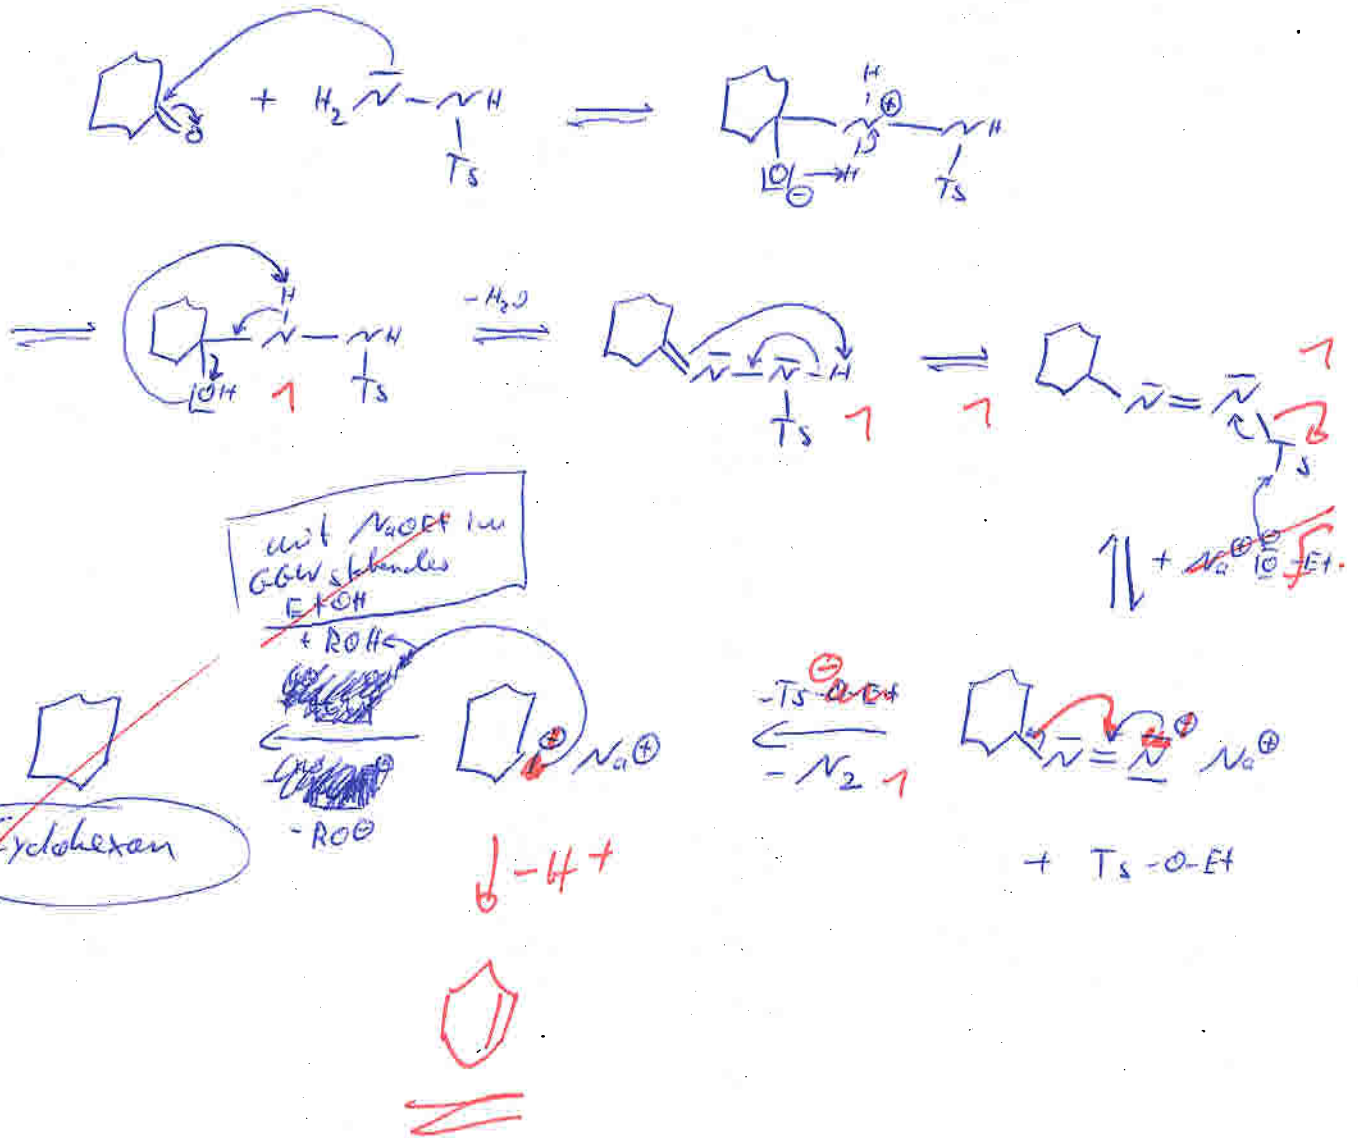 O + H₂N̄ – NH
Ts
H
N⊕ – NH
|O̲|⊖ → H
Ts
H
N – NH
|O̲H
1
Ts
- H₂O
N̄ – N̄ – H
Ts
1
1
N̄ = N̄
1
Ts
+ Na⊕ ⊖|O̲ – Et
mit NaOEt im
GGW stehendes
EtOH
+ ROH
- RO⊖
Cyclohexan
⊕
Na⊕
⊖
- Ts-O-Et
- N₂ 1
N̄ = N̲ ⊕ Na⊕
+ Ts-O-Et
- H +